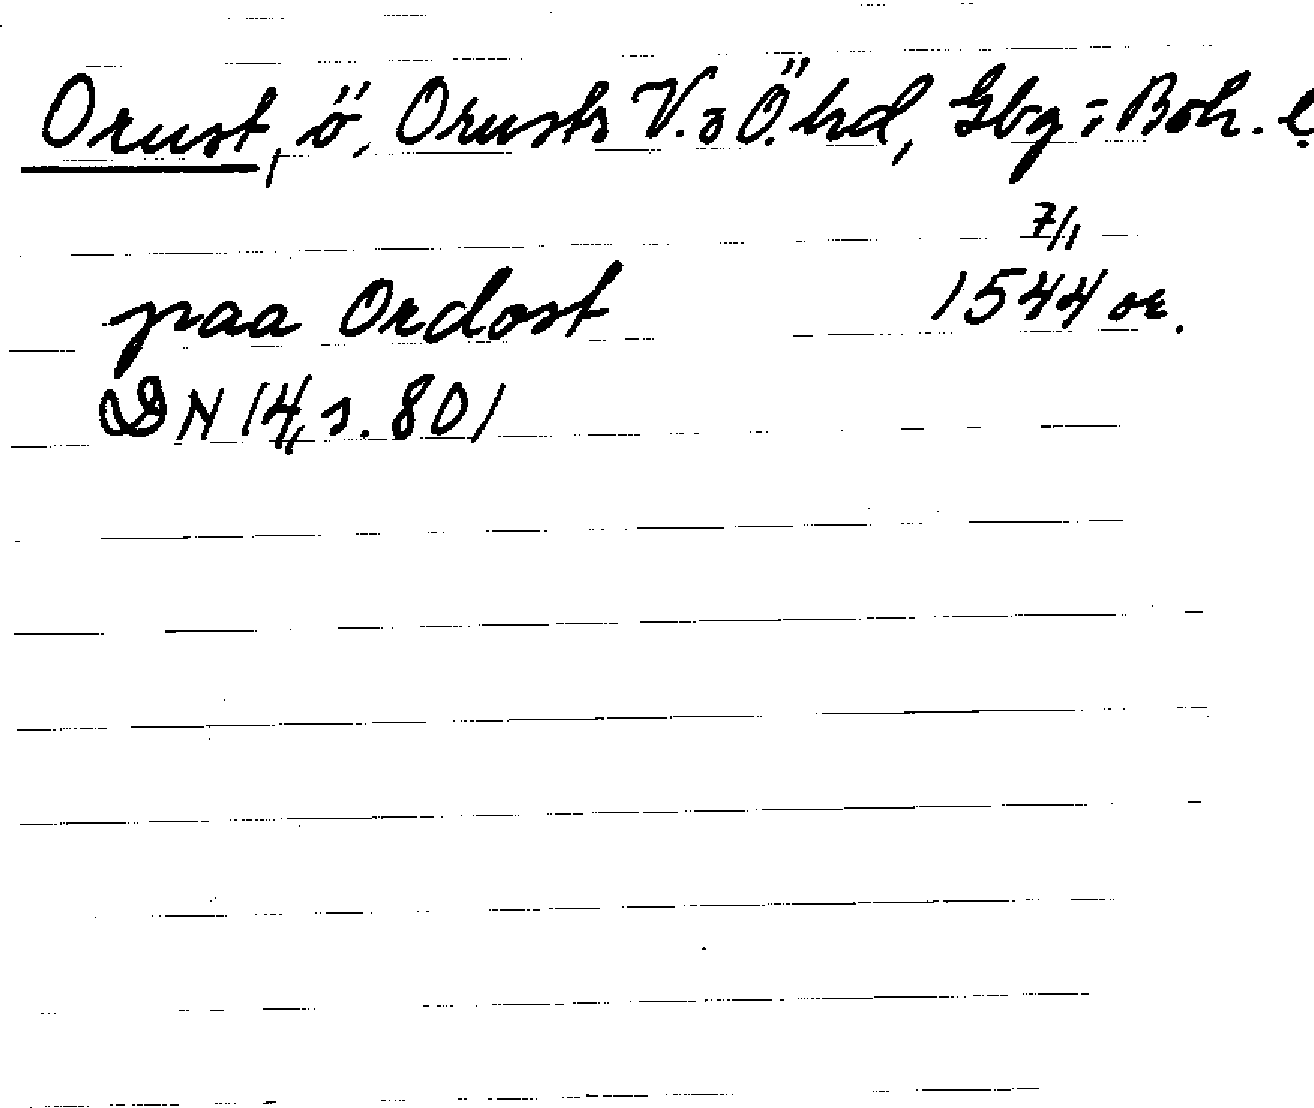 Orust, ö, Orusts V. o Ö. hd, Gbg; Boh. l.
7/1
paa Ordost 1544 or.
DN 14, s. 801